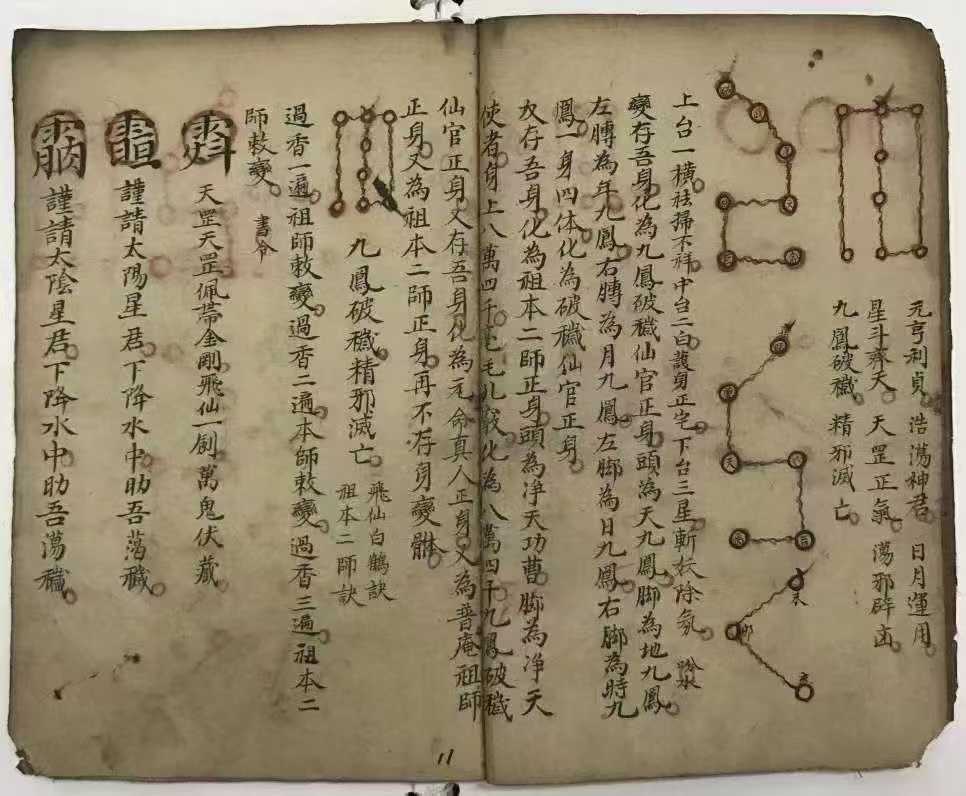 元亨利貞 浩蕩神君 日月運用
星斗齊天 天罡正氣 蕩邪辟
九鳳破穢 精邪滅亡
上台一橫祛掃不祥中台二白護身正宅下台三星斬妖除氛
變存吾身化為九鳳破穢仙官正身頭為天九鳳脚為地九鳳
左膊為年九鳳右膊為月九鳳左脚為日九鳳右脚為時九
鳳一身四体化為破穢仙官正身
次存吾身化為祖本二師正身頭為净天功曹脚為净天
使者身上八萬四千毛孔化為八萬四千九鳳破穢
仙官正身又存吾身化為元命真人正身又為普庵祖師
正身又為祖本二師正身再不存身變體
九鳳破穢精邪滅亡
飛仙白鶴訣
祖本二師訣
過香一遍祖師敕變過香二遍本師敕變過香三遍祖本二
師敕變
書令
天罡天罡佩帶金剛飛仙一劍萬鬼伏藏
謹請太陽星君下降水中助吾蕩穢
謹請太陰星君下降水中助吾蕩穢
11